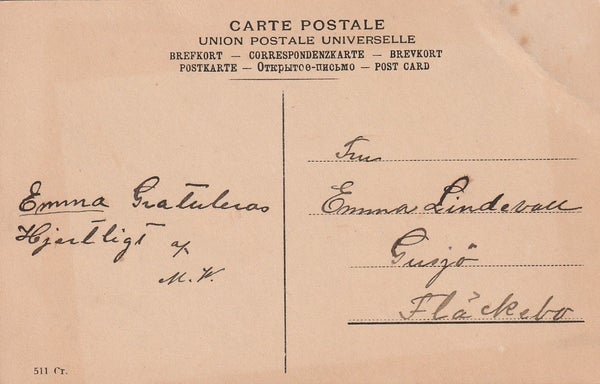 CARTE POSTALE
UNION POSTALE UNIVERSELLE
BREFKORT — CORRESPONDENZKARTE — BREVKORT
POSTKARTE — Открытое-письмо — POST CARD
Emma Gratuleras
Hjertligt af
M. W.
Fru
Emma Lindevall
Gusjö
Fläckebo
511 Cr.